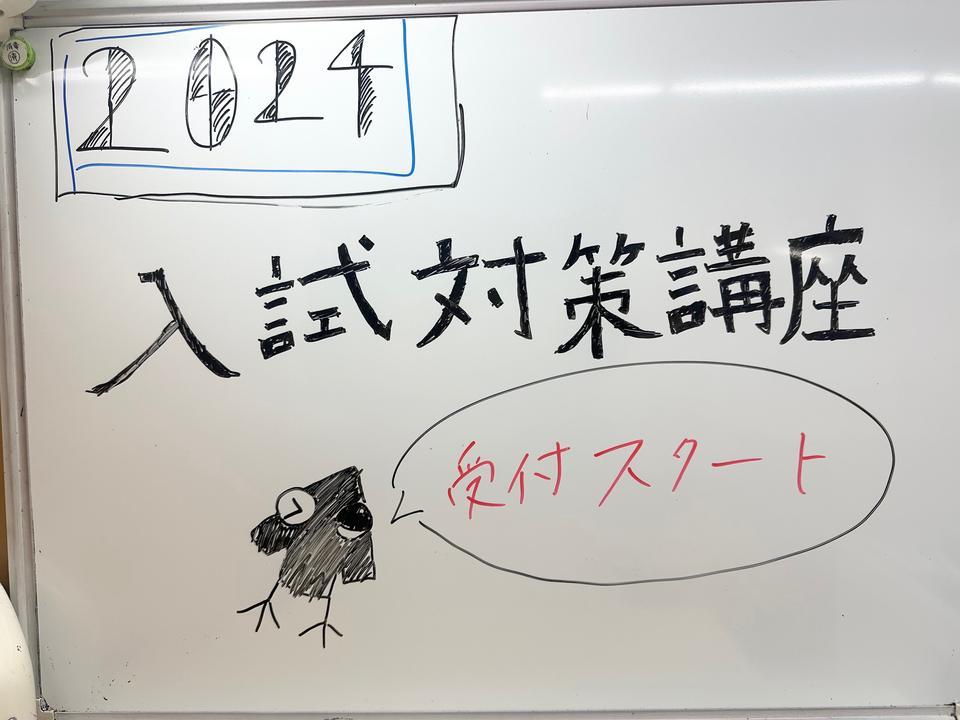 2024
入試対策講座
受付スタート